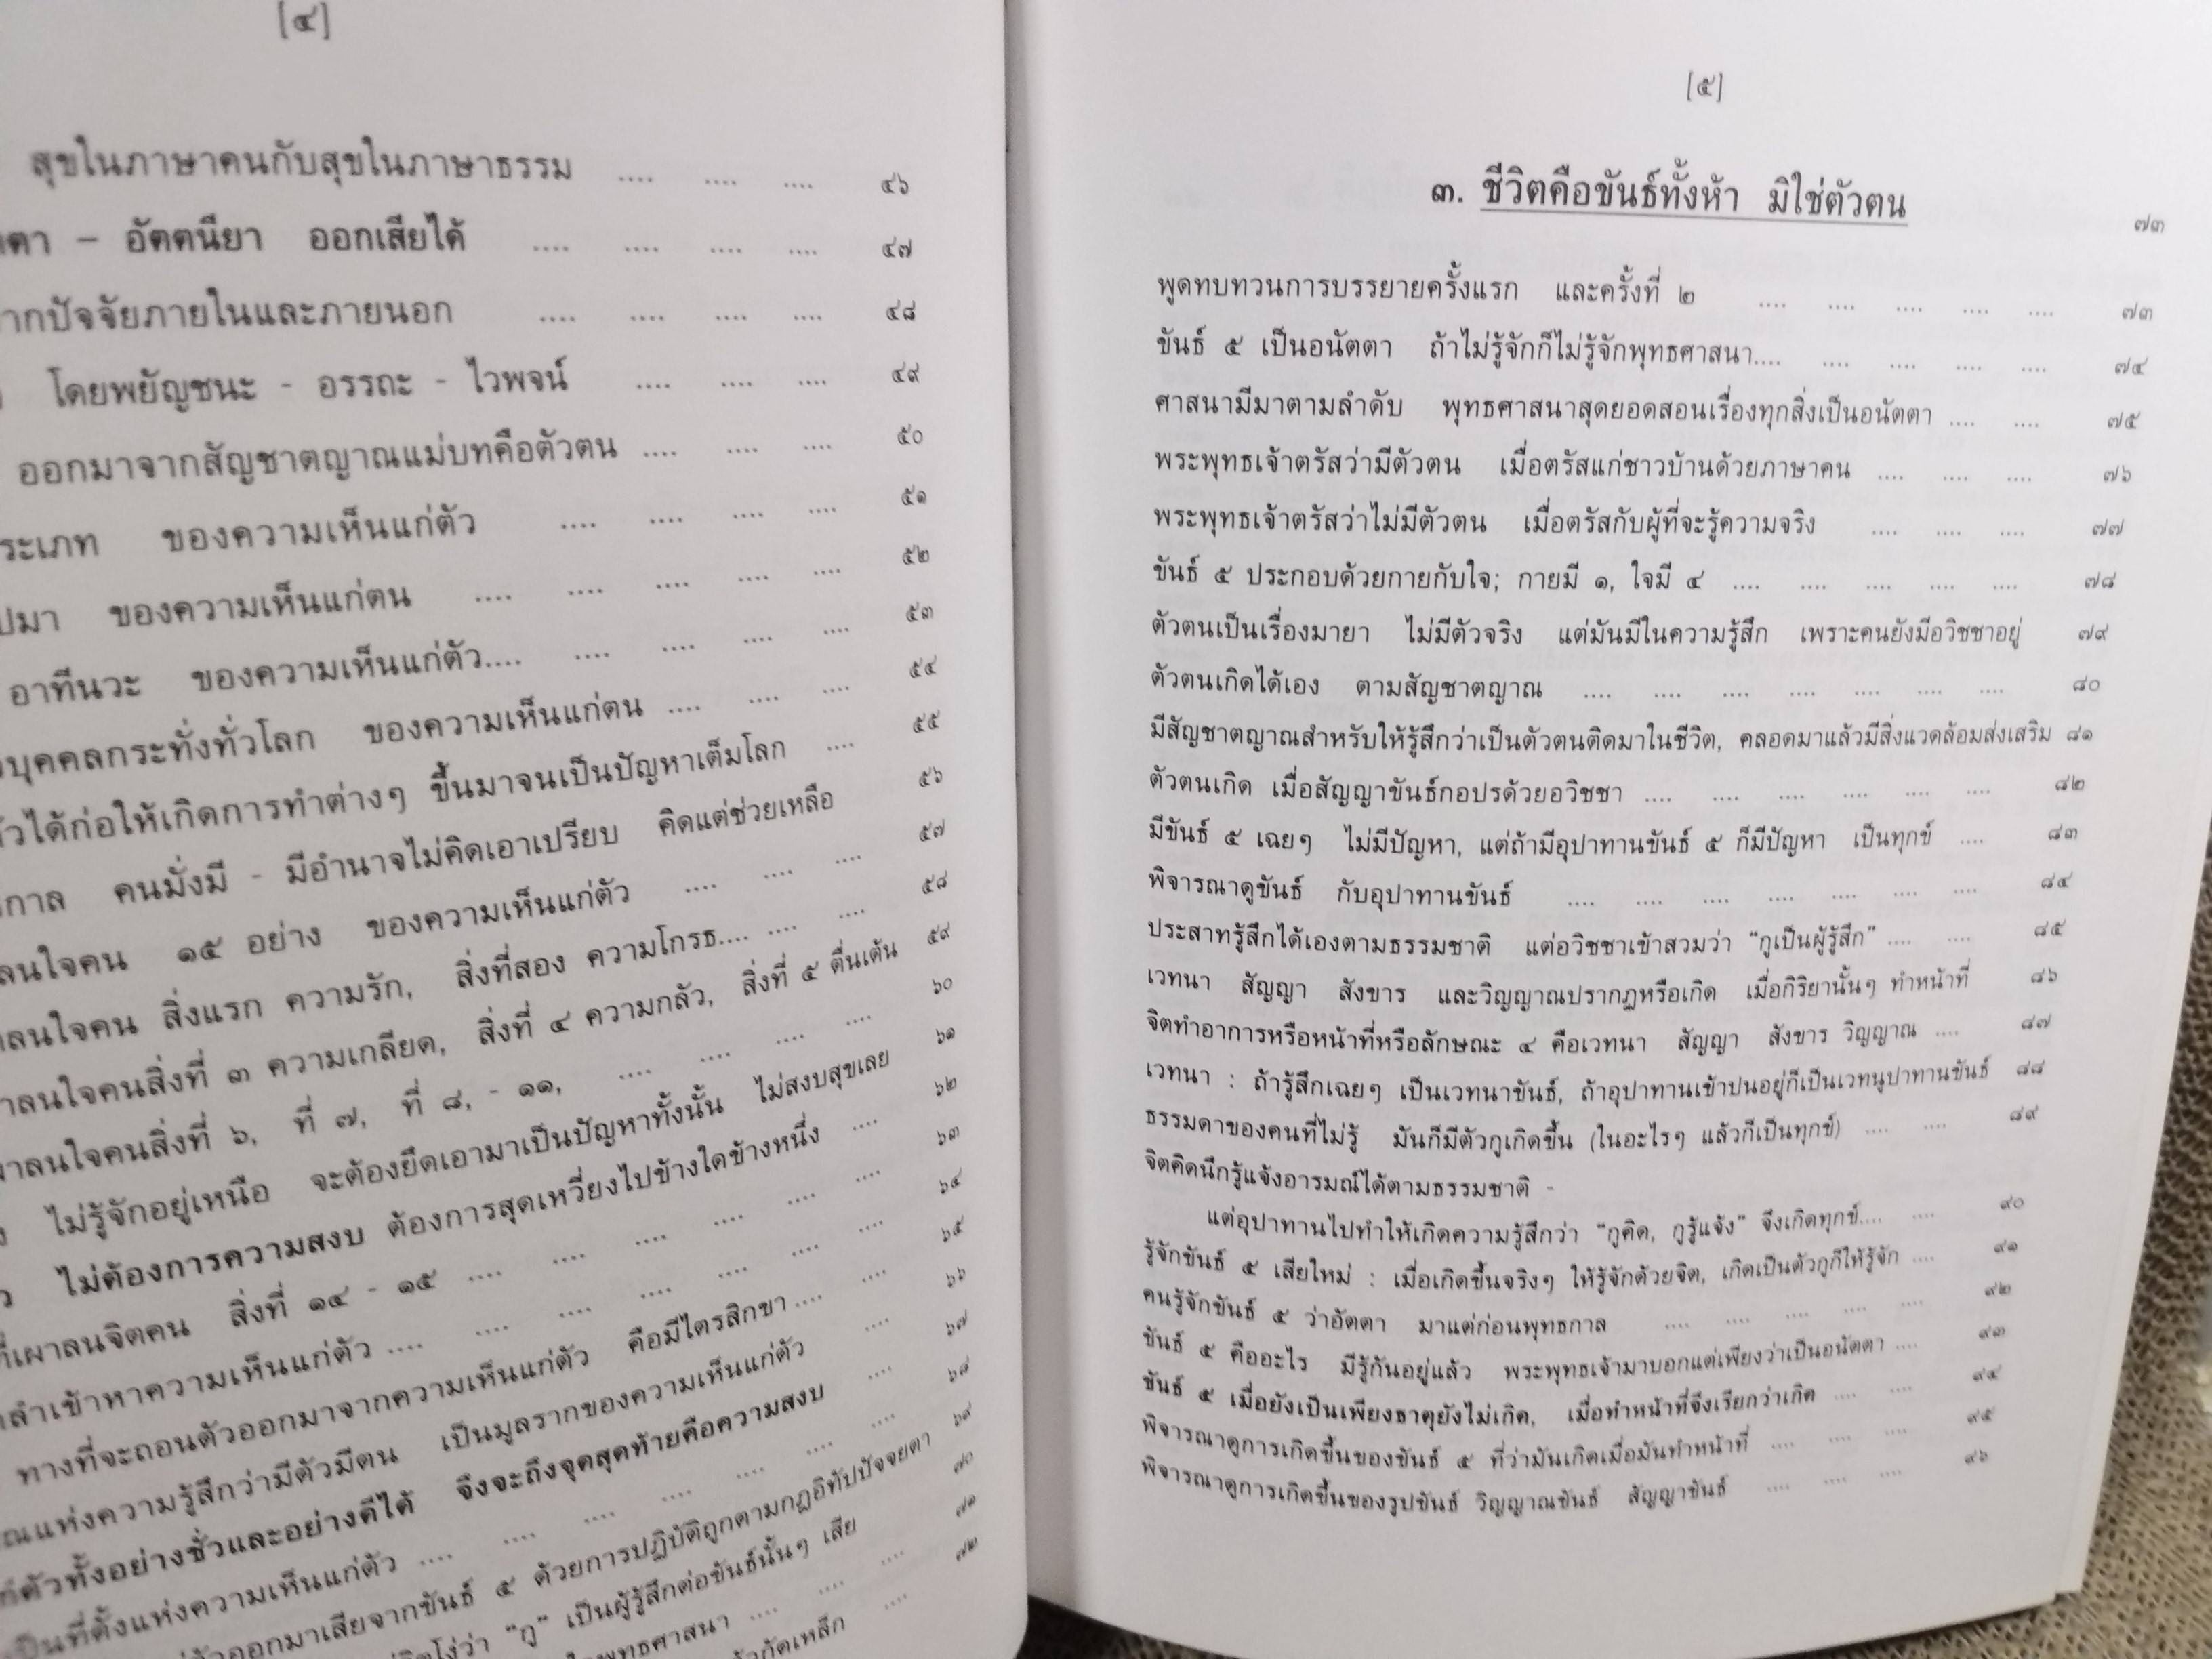 [๔]
สุขในภาษาคนกับสุขในภาษาธรรม .... .... .... ๔๖
– อัตตนียา ออกเสียได้ .... .... .... .... ๔๗
ากปัจจัยภายในและภายนอก .... .... .... .... ๔๘
โดยพยัญชนะ - อรรถะ - ไวพจน์ .... .... .... ๔๙
ออกมาจากสัญชาตญาณแม่บทคือตัวตน .... .... .... ๕๐
ระเภท ของความเห็นแก่ตัว .... .... .... .... ๕๑
ปมา ของความเห็นแก่ตน .... .... .... .... .... ๕๒
อาทีนวะ ของความเห็นแก่ตัว.... .... .... .... .... ๕๓
บุคคลกระทั่งทั่วโลก ของความเห็นแก่ตน .... .... .... ๕๔
ัวได้ก่อให้เกิดการทำต่างๆ ขึ้นมาจนเป็นปัญหาเต็มโลก .... ๕๕
กาล คนมั่งมี - มีอำนาจไม่คิดเอาเปรียบ คิดแต่ช่วยเหลือ ๕๖
ลนใจคน ๑๕ อย่าง ของความเห็นแก่ตัว .... .... .... ๕๗
ลนใจคน สิ่งแรก ความรัก, สิ่งที่สอง ความโกรธ.... .... .... ๕๘
าลนใจคนสิ่งที่ ๓ ความเกลียด, สิ่งที่ ๔ ความกลัว, สิ่งที่ ๕ ตื่นเต้น ๕๙
าลนใจคนสิ่งที่ ๖, ที่ ๗, ที่ ๘, - ๑๑, .... .... .... .... ๖๐
ไม่รู้จักอยู่เหนือ จะต้องยึดเอามาเป็นปัญหาทั้งนั้น ไม่สงบสุขเลย ๖๑
ไม่ต้องการความสงบ ต้องการสุดเหวี่ยงไปข้างใดข้างหนึ่ง .... ๖๒
ที่เผาลนจิตคน สิ่งที่ ๑๔ - ๑๕ .... .... .... .... .... .... ๖๓
ลำเข้าหาความเห็นแก่ตัว .... .... .... .... .... .... ๖๔
ทางที่จะถอนตัวออกมาจากความเห็นแก่ตัว คือมีไตรสิกขา .... .... ๖๕
ณแห่งความรู้สึกว่ามีตัวมีตน เป็นมูลรากของความเห็นแก่ตัว .... ๖๖
ตัวทั้งอย่างชั่วและอย่างดีได้ จึงจะถึงจุดสุดท้ายคือความสงบ .... ๖๗
เป็นที่ตั้งแห่งความเห็นแก่ตัว .... .... .... .... .... .... .... ๖๘
ออกมาเสียจากขันธ์ ๕ ด้วยการปฏิบัติถูกตามกฎอิทัปปัจจยตา ๖๙
ว่า “กู” เป็นผู้รู้สึกต่อขันธ์นั้นๆ เสีย ๗๐
พุทธศาสนา .... .... .... ๗๑
กัดเหล็ก .... ๗๒
[๕]
๓. ชีวิตคือขันธ์ทั้งห้า มิใช่ตัวตน ๗๓
พูดทบทวนการบรรยายครั้งแรก และครั้งที่ ๒ .... .... .... .... .... ๗๓
ขันธ์ ๕ เป็นอนัตตา ถ้าไม่รู้จักก็ไม่รู้จักพุทธศาสนา.... .... .... .... .... ๗๔
ศาสนามีมาตามลำดับ พุทธศาสนาสุดยอดสอนเรื่องทุกสิ่งเป็นอนัตตา .... .... ๗๕
พระพุทธเจ้าตรัสว่ามีตัวตน เมื่อตรัสแก่ชาวบ้านด้วยภาษาคน .... .... .... ๗๖
พระพุทธเจ้าตรัสว่าไม่มีตัวตน เมื่อตรัสกับผู้ที่จะรู้ความจริง .... .... .... ๗๗
ขันธ์ ๕ ประกอบด้วยกายกับใจ; กายมี ๑, ใจมี ๔ .... .... .... .... .... ๗๘
ตัวตนเป็นเรื่องมายา ไม่มีตัวจริง แต่มันมีในความรู้สึก เพราะคนยังมีอวิชชาอยู่ ๗๙
ตัวตนเกิดได้เอง ตามสัญชาตญาณ .... .... .... .... .... .... .... ๘๐
มีสัญชาตญาณสำหรับให้รู้สึกว่าเป็นตัวตนติดมาในชีวิต, คลอดมาแล้วมีสิ่งแวดล้อมส่งเสริม ๘๑
ตัวตนเกิด เมื่อสัญญาขันธ์กอปรด้วยอวิชชา .... .... .... .... .... .... ๘๒
มีขันธ์ ๕ เฉยๆ ไม่มีปัญหา, แต่ถ้ามีอุปาทานขันธ์ ๕ ก็มีปัญหา เป็นทุกข์ .... ๘๓
พิจารณาดูขันธ์ กับอุปาทานขันธ์ .... .... .... .... .... .... .... ๘๔
ประสาทรู้สึกได้เองตามธรรมชาติ แต่อวิชชาเข้าสวมว่า “กูเป็นผู้รู้สึก” .... .... ๘๕
เวทนา สัญญา สังขาร และวิญญาณปรากฏหรือเกิด เมื่อกิริยานั้นๆ ทำหน้าที่ ๘๖
จิตทำอาการหรือหน้าที่หรือลักษณะ ๔ คือเวทนา สัญญา สังขาร วิญญาณ .... ๘๗
เวทนา : ถ้ารู้สึกเฉยๆ เป็นเวทนาขันธ์, ถ้าอุปาทานเข้าปนอยู่ก็เป็นเวทนูปาทานขันธ์ ๘๘
ธรรมดาของคนที่ไม่รู้ มันก็มีตัวกูเกิดขึ้น (ในอะไรๆ แล้วก็เป็นทุกข์) .... .... ๘๙
จิตคิดนึกรู้แจ้งอารมณ์ได้ตามธรรมชาติ -
แต่อุปาทานไปทำให้เกิดความรู้สึกว่า “กูคิด, กูรู้แจ้ง” จึงเกิดทุกข์.... .... ๙๐
รู้จักขันธ์ ๕ เสียใหม่ : เมื่อเกิดขึ้นจริงๆ ให้รู้จักด้วยจิต, เกิดเป็นตัวกูก็ให้รู้จัก .... ๙๑
คนรู้จักขันธ์ ๕ ว่าอัตตา มาแต่ก่อนพุทธกาล .... .... .... .... .... ๙๒
ขันธ์ ๕ คืออะไร มีรู้กันอยู่แล้ว พระพุทธเจ้ามาบอกแต่เพียงว่าเป็นอนัตตา .... ๙๓
ขันธ์ ๕ เมื่อยังเป็นเพียงธาตุยังไม่เกิด, เมื่อทำหน้าที่จึงเรียกว่าเกิด .... .... ๙๔
พิจารณาดูการเกิดขึ้นของขันธ์ ๕ ที่ว่ามันเกิดเมื่อมันทำหน้าที่ .... .... .... ๙๕
พิจารณาดูการเกิดขึ้นของรูปขันธ์ วิญญาณขันธ์ สัญญาขันธ์ .... .... .... ๙๖